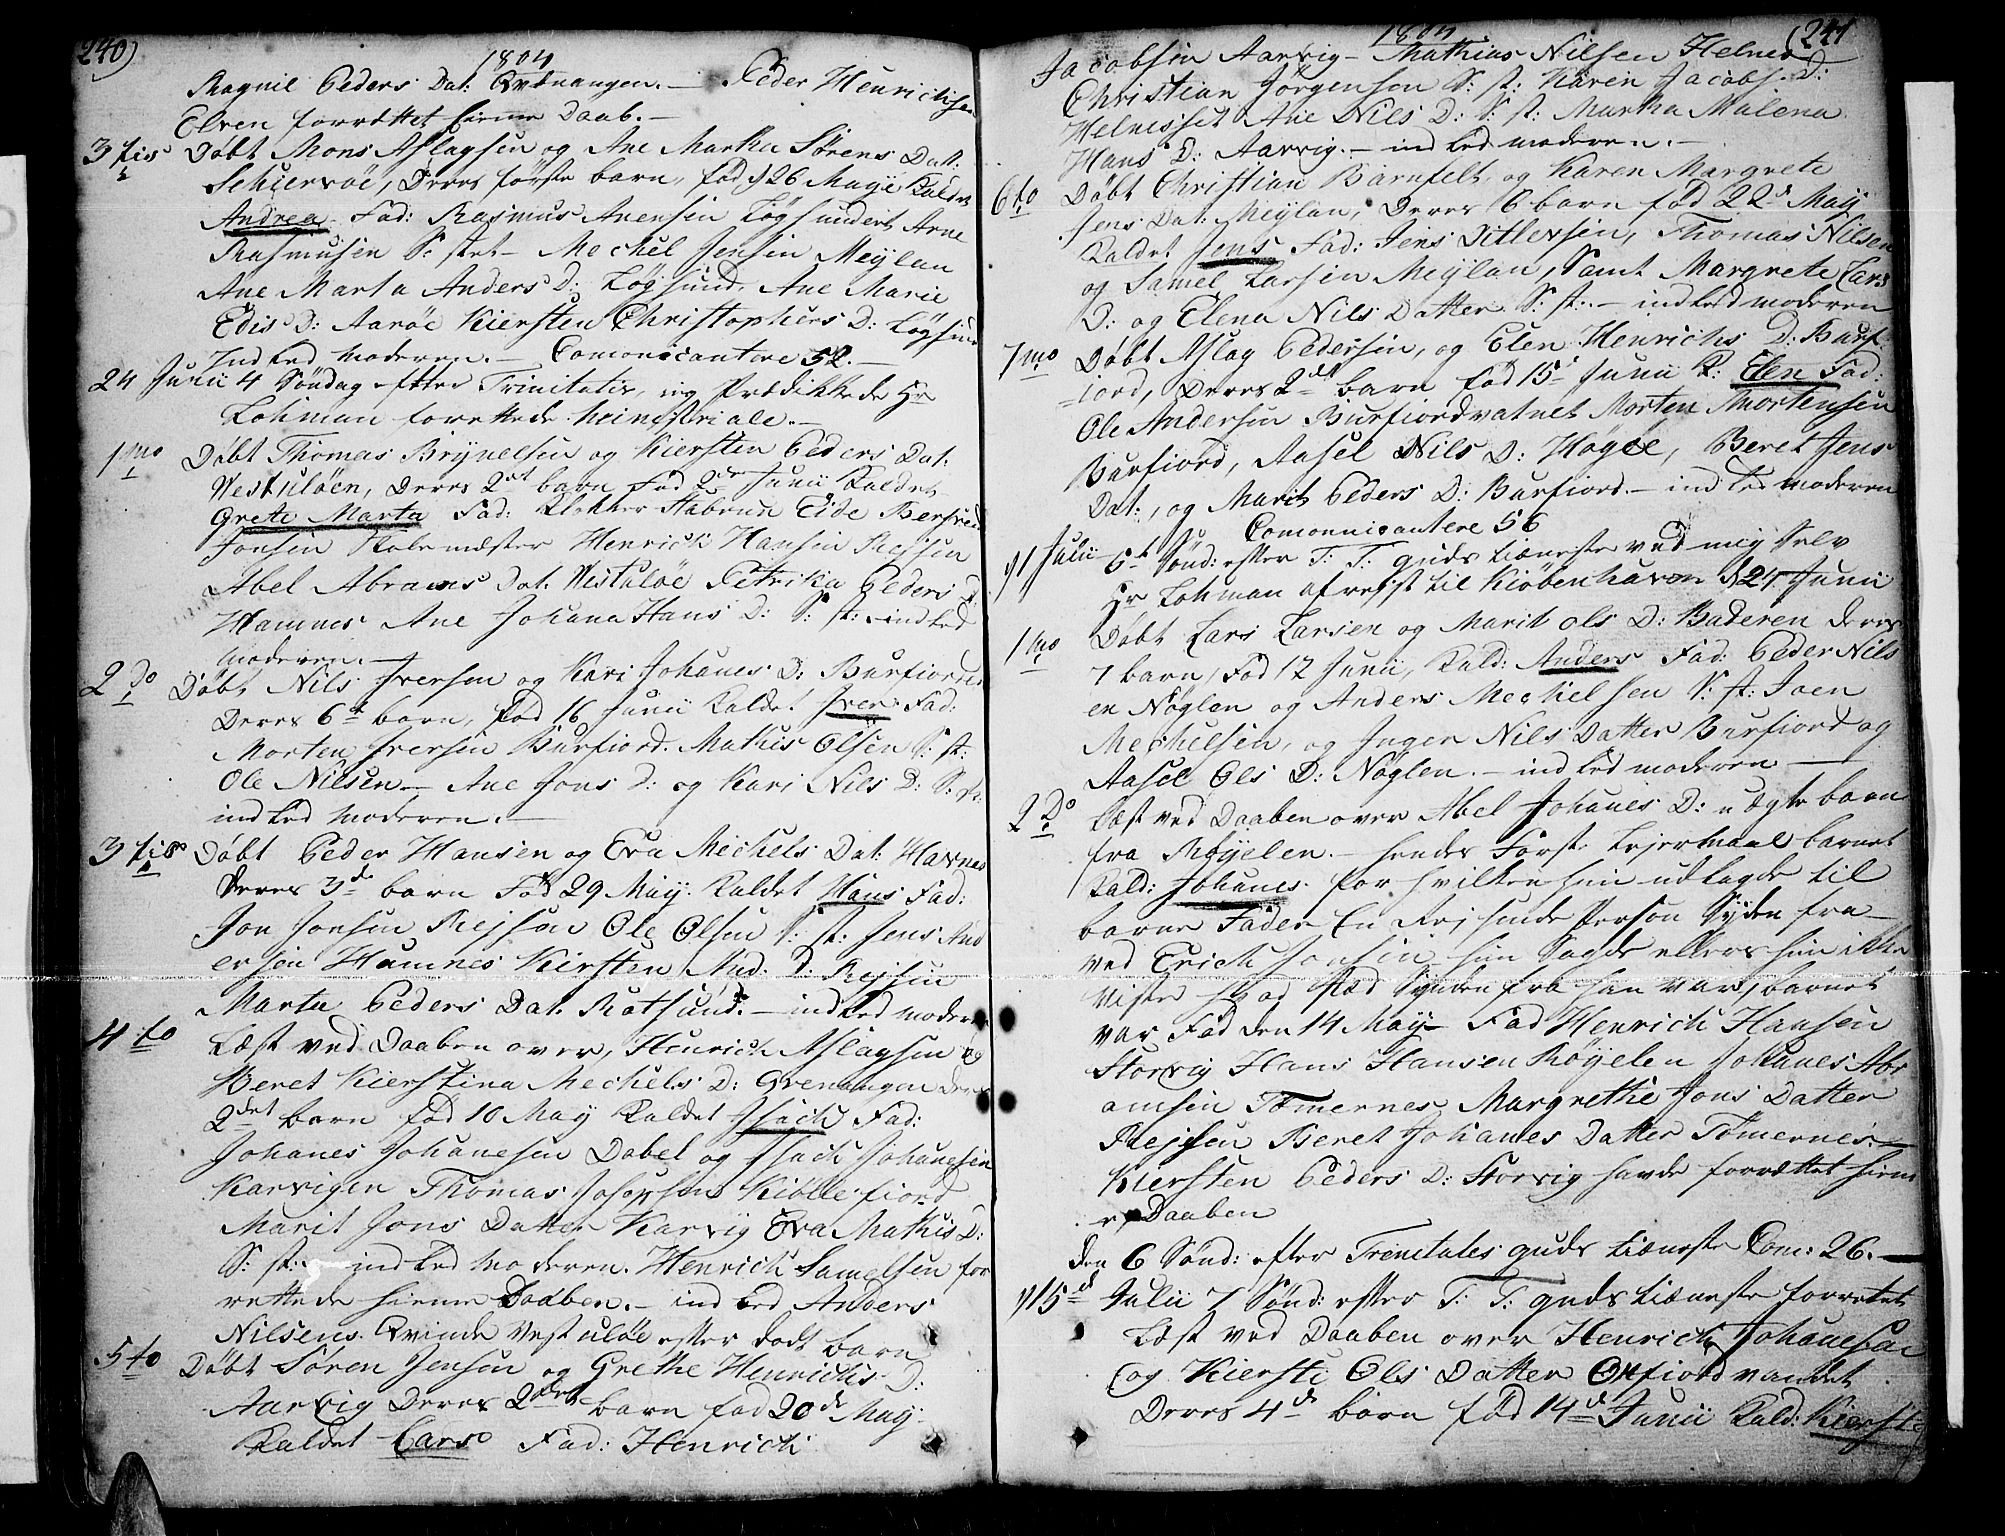 240)
1804
Ragnil Peders Dat: Qvænangen. — Peder Henrichsen
Elven forrættet hieme Daab. —
3 tio Døbt Mons Aslagsen og Ane Martha Sørens Dat:
Schiervøe, Deres første barn, fød d 26 Maye Kaldet
Andrea Fad: Rasmus Arnesen Løgsundet Arne
Rasmusen S: stet — Mechel Jensen Meylan
Ane Marta Anders D: Løgsund, Ane Marie
Edis D: Aarøe Kiersten Christophers D: Løgsund
Ind led moderen. — Comonicantere 52. —
24 Junii 4 Søndag efter Trinitatis, og Prædikkede Hr
Lohman forrettede
1mo Døbt Thomas Brynelsen og Kiersten Peders Dat:
Vestuløen, Deres 2det barn fød 2den Junii Kaldet
Grete Marta Fad: Klokker Habrun Eide Bersvend
Jonsen Skolemæster Henrich Hansen Rejsen
Abel Abrams Dat. Vestuløe Petrika Peders D:
Hamnes Ane Johana Hans D: S: st: — ind led
moderen. —
2do Døbt Nils Iversen og Kari Johanes D: Burfiorden
Deres 6te barn, fød 16 Junii Kaldet Iver Fad:
Morten Iversen Burfiord. Mathis Olsen S: st:
Ole Nilsen — Ane Jons D: og Kari Nils D: S: st:
ind led moderen. —
3 tio Døbt Peder Hansen og Eva Mechels Dat: Havnes
Deres 3de barn Fød 29 May. Kaldet Hans Fad:
Jon Jonsen Rejsen Ole Olsen S: st: Jens And
ersen Hamnes Kiersten And: D: Rejsen
Marta Peders Dat. Rotsund. — ind led moderen
4 to Læst ved Daaben over, Henrich Aslagsen og
Beret Kierstina Mechels D: Grenangen deres
2det barn fød 10 May Kaldet Isach Fad:
Johanes Johanesen Dabel og Isach Johanesen
Karvigen Thomas Josepsen Kiøllefiord
Marit Jons Datter Karvig Eva Mathis D:
S: st: — ind led Moderen. Henrich Samelsen for
rettede hieme Daaben. — ind led Anders
Nilsens Qvinde Vestuløe efter dødt barn
5 to Døbt Søren Jensen og Grethe Henrichs D:
Aarvig Deres 2det barn fød 20de May
Kaldet Lars Fad: Henrich
1804
(241
Jacobsen Aarvig — Mathias Nilsen Helnes
Christian Jørgensen S: st: Karen Jacobs: D:
Helnesset Ane Nils D: S: st: Martha Malena
Hans D: Aarvig. — ind led moderen. —
6to Døbt Christian Barnfelt og Karen Margrete
Jens Dat: Meylan, Deres 6 barn fød 22de May
Kaldet Jens Fad: Jens Ditlevsen, Thomas Nilsen
og Samel Larsen Meylan, Samt Margrete Lars
D: og Elena Nils Datter S: st: — ind led moderen
7mo Døbt Aslag Pedersen, og Elen Henrichs D: Burf
iord, Deres 2det barn fød 15 Junii K: Elen Fad:
Ole Andersen Burfiordvatnet Morten Mortensen
Burfiord, Aasel Nils D: Høgøe, Beret Jens
Dat:, og Marit Peders D: Burfiord. — ind led moderen
Comonnicantere 56
d 1 Julii 5te Sønd: efter T: T: guds tiæneste ved mig Selv
Hr Lohman afrejst til Kiøbenhavn d 24 Junii
1mo Døbt Lars Larsen og Marit Ols D: Baderen deres
7 barn, Fød 12 Junii, Kald: Anders Fad: Peder Nils
en Nøglen og Anders Mechelsen S: st: Joen
Mechelsen, og Inger Nils Datter Burfiord og
Aasel Ols D: Nøglen. — ind led moderen —
2do Læst ved Daaben over Abel Johanes D: uægte barn
fra Røyelen. — hendes Første Lejermaal barnet
Kald: Johanes. for hvilken hun udlagde til
barne Fader En Rejsende Person Syden fra
ved Erich Jonsen, hun Sagde ellers hun ikke
Viste hvad stæd Synden fra han var, barnet
var Fød den 14 May — Fad Henrich Hansen
Storvig Hans Hansen Røyelen Johanes Abr
amsen Tømernes Margrethe Jons Datter
Rejsen Beret Johanes Datter Tømernes. —
Kiersten Peders D: Storvig havde forrættet hiem
Daaben
den 6 Sønd: efter Trinitates guds tiæneste Com: 26. —
d 15de Julii 7 Sønd: efter T: T: guds tiæneste forrettet
Læst ved Daaben over Henrich Johanesen
og Kiersti Ols Datter Oxfiordvandet
Deres 4de barn fød 14de Junii Kald: Kiersti